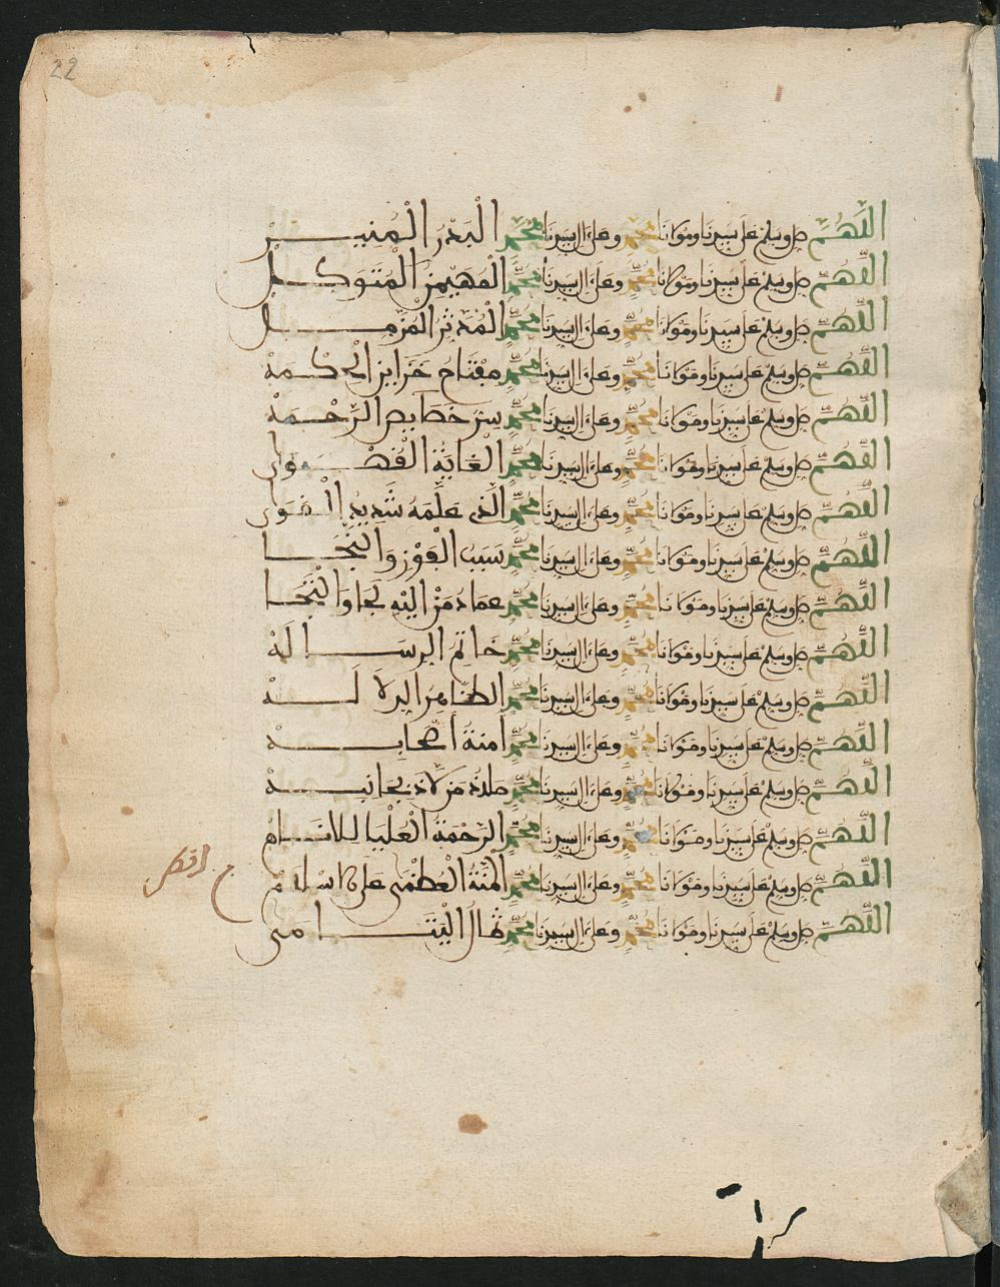 22
اللَّهُمَّ صل وسلم على سيدنا ومولانا محمد وعلى ءال سيدنا محمد الْبَدْرِ الْمُنِيرْ
اللَّهُمَّ صل وسلم على سيدنا ومولانا محمد وعلى ءال سيدنا محمد الْمُهَيْمِنِ الْمُتَوَكِّل
اللَّهُمَّ صل وسلم على سيدنا ومولانا محمد وعلى ءال سيدنا محمد الْمُدَّثِّرِ الْمُزَّمِّل
اللَّهُمَّ صل وسلم على سيدنا ومولانا محمد وعلى ءال سيدنا محمد مِفْتَاحِ خَزَاينِ الْحِكْمَهْ
اللَّهُمَّ صل وسلم على سيدنا ومولانا محمد وعلى ءال سيدنا محمد سِرِّ خَطَايصِ الرَّحْمَهْ
اللَّهُمَّ صل وسلم على سيدنا ومولانا محمد وعلى ءال سيدنا محمد الْغَايَةِ الْقُصْوى
اللَّهُمَّ صل وسلم على سيدنا ومولانا محمد وعلى ءال سيدنا محمد الَّذِي عَلَّمَهُ شَدِيدُ الْقُوى
اللَّهُمَّ صل وسلم على سيدنا ومولانا محمد وعلى ءال سيدنا محمد سَبَبِ الْفَوْزِ وَالنَّجَا
اللَّهُمَّ صل وسلم على سيدنا ومولانا محمد وعلى ءال سيدنا محمد عِمَادِ مَنْ اليْهِ لجا وَالْتَجَا
اللَّهُمَّ صل وسلم على سيدنا ومولانا محمد وعلى ءال سيدنا محمد خَاتِمِ الرسَالَهْ
اللَّهُمَّ صل وسلم على سيدنا ومولانا محمد وعلى ءال سيدنا محمد الظاهِرِ الدلالَهْ
اللَّهُمَّ صل وسلم على سيدنا ومولانا محمد وعلى ءال سيدنا محمد امنة اصحابهْ
اللَّهُمَّ صل وسلم على سيدنا ومولانا محمد وعلى ءال سيدنا محمد ملاذ من لاذ بجانبهْ
اللَّهُمَّ صل وسلم على سيدنا ومولانا محمد وعلى ءال سيدنا محمد الرَّحْمَةِ الْعُلْيَا للانام
اللَّهُمَّ صل وسلم على سيدنا ومولانا محمد وعلى ءال سيدنا محمد الْمِنَّةِ الْعُظْمَى على الاسلام
اللَّهُمَّ صل وسلم على سيدنا ومولانا محمد وعلى ءال سيدنا محمد ثمالِ الْيَتَامى